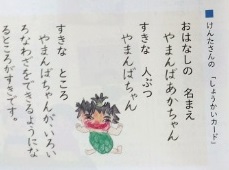 ■けんたさんの「しょうかいカード」
おはなしの 名まえ
やまんばあかちゃん
すきな 人ぶつ
やまんばちゃん
すきな ところ
やまんばちゃんがいろい
ろなわざをできるようにな
るところがすきです。